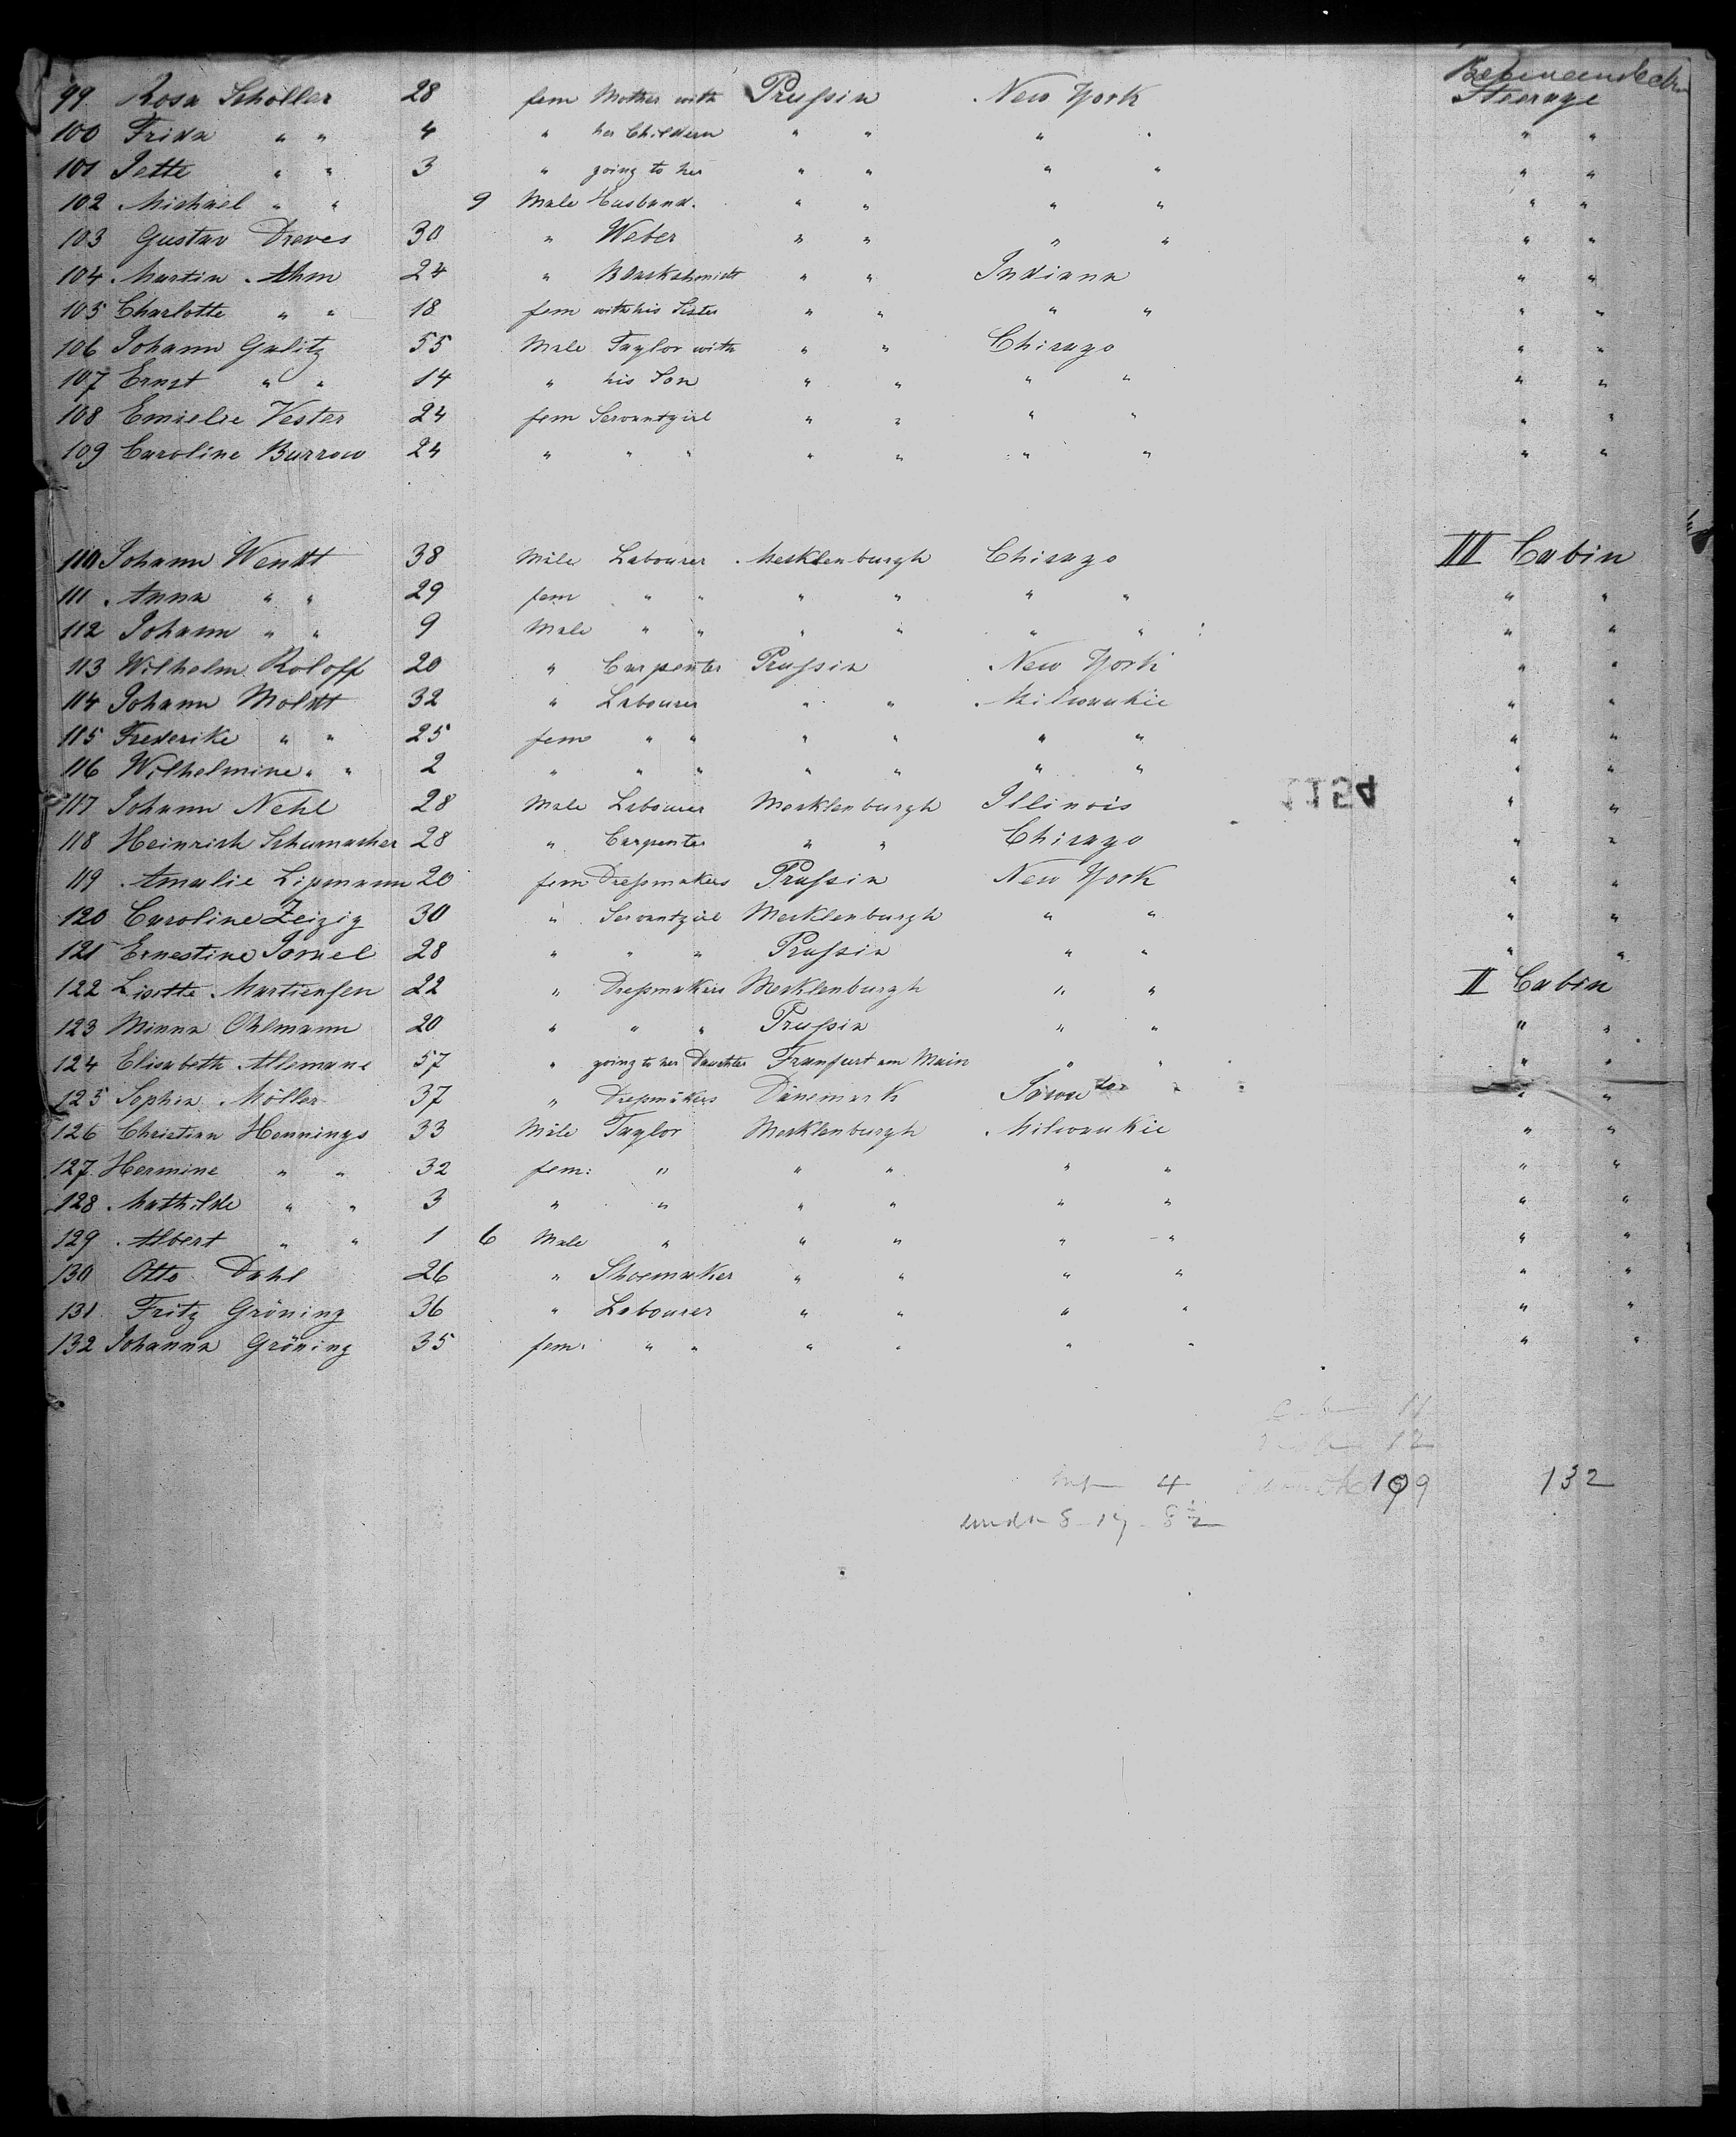 Betweendeck
99 Rosa Schöller 28 fem Mother with Prussia New York Steerage
100 Frida " " 4 " her Childern " " " " " "
101 Jette " " 3 " going to her " " " " " "
102 Michael " " 9 Male Husband. " " " " " "
103 Gustav Dreves 30 " Weber " " " " " "
104 Martin Ahm 24 " Blackshmidt " " Indiana " "
105 Charlotte " " 18 fem with his Sister " " " " " "
106 Johann Galitz 55 Male Taylor with " " Chicago " "
107 Ernst " " 14 " his Son " " " " " "
108 Emielie Vester 24 fem Servantgirl " " " " " "
109 Caroline Burrow 24 " " " " " " " " "
110 Johann Wendt 38 Male Labourer Mecklenburgh Chicago III Cabin
111 Anna " " 29 fem " " " " " " " "
112 Johann " " 9 Male " " " " " " " "
113 Wilhelm Roloff 20 " Carpenter Prussia New York " "
114 Johann Moldt 32 " Labourer " " Milwaukie " "
115 Frederike " " 25 fem " " " " " " " "
116 Wilhelmine " " 2 " " " " " " " " "
117 Johann Nehl 28 Male Labourer Mecklenburgh Illinois " "
1154
118 Heinrich Schumacher 28 " Carpenter " " Chicago " "
119 Amalie Lipmann 20 fem Dressmakers Prussia New York " "
120 Caroline Zeizig 30 " Servantgirl Mecklenburgh " " " "
121 Ernestine 28 " " " Prussia " " " "
122 Lisette Martiensen 22 " Dressmakers Mecklenburgh " " II Cabin
123 Minna Ohlmann 20 " " " Prussia " " " "
124 Elisabeth Allemane 57 " going to her Daughter Franfurt am Main " " " "
125 Sophia Möller 37 " Dressmakers Dänemark " "
126 Christian Hennings 33 Male Taylor Mecklenburgh Milwaukie " "
127 Hermine " " 32 fem: " " " " " " "
128 Mathilde " " 3 " " " " " " " "
129 Albert " " 1 6 Male " " " " " " "
130 Otto Dahl 26 " Shoemaker " " " " " "
131 Fritz Gröning 36 " Labourer " " " " " "
132 Johanna Gröning 35 fem: " " " " " " " "
11
12
4 109 132
8 - 17 - 8½